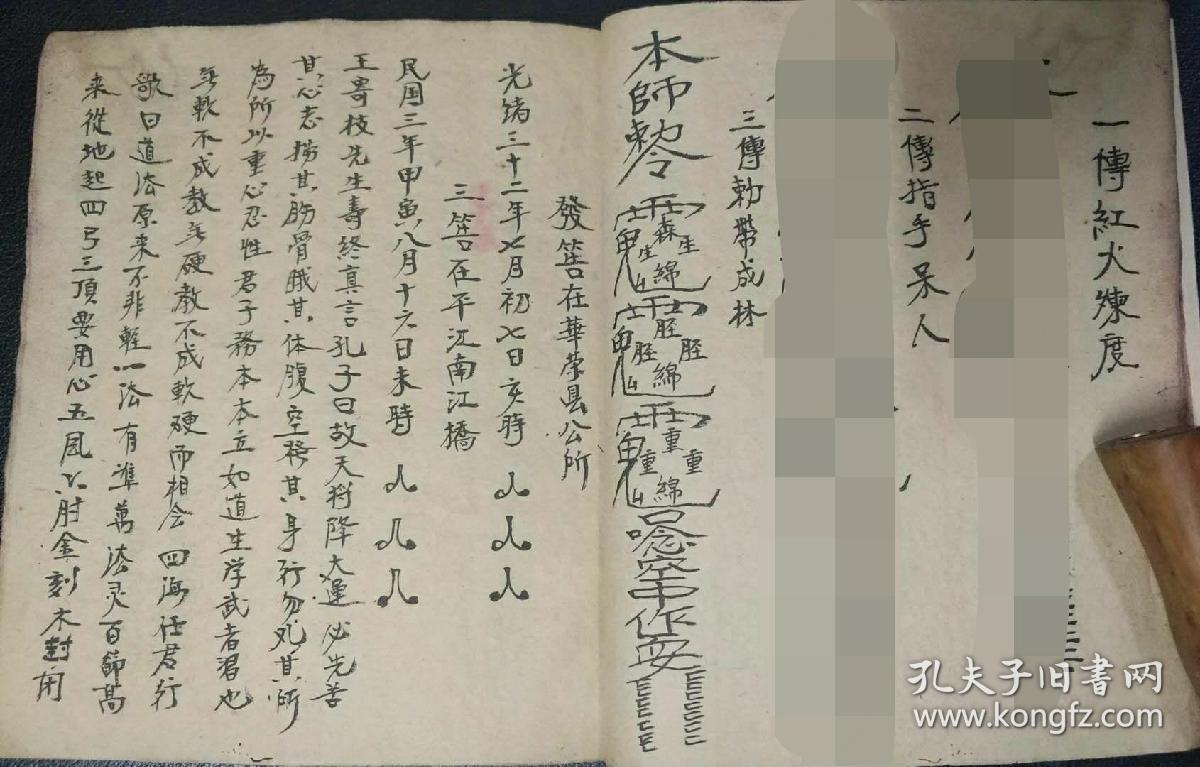 一傳紅火煉度
二傳指手呆人
三傳勅帶成林
本師勅令
發筶在華荣县公所
光绪三十二年七月初七日亥時
三筶在平江南江橋
民国三年甲寅八月十六日未時
王寄枝先生壽終真言孔子曰故天將降大運必先苦
其心志撈其肋骨餓其体腹空務其身行勿死其所
為所以重心忍性君子務本本立如道生学武者混也
無軟不成教無硬教不成軟硬而相会四海任君行
歌曰道法原来不非輕一法有準萬法灵百師高
来從地起四弓三頂要用心五風六肘金刻木封闭
孔夫子旧书网
www.kongfz.com